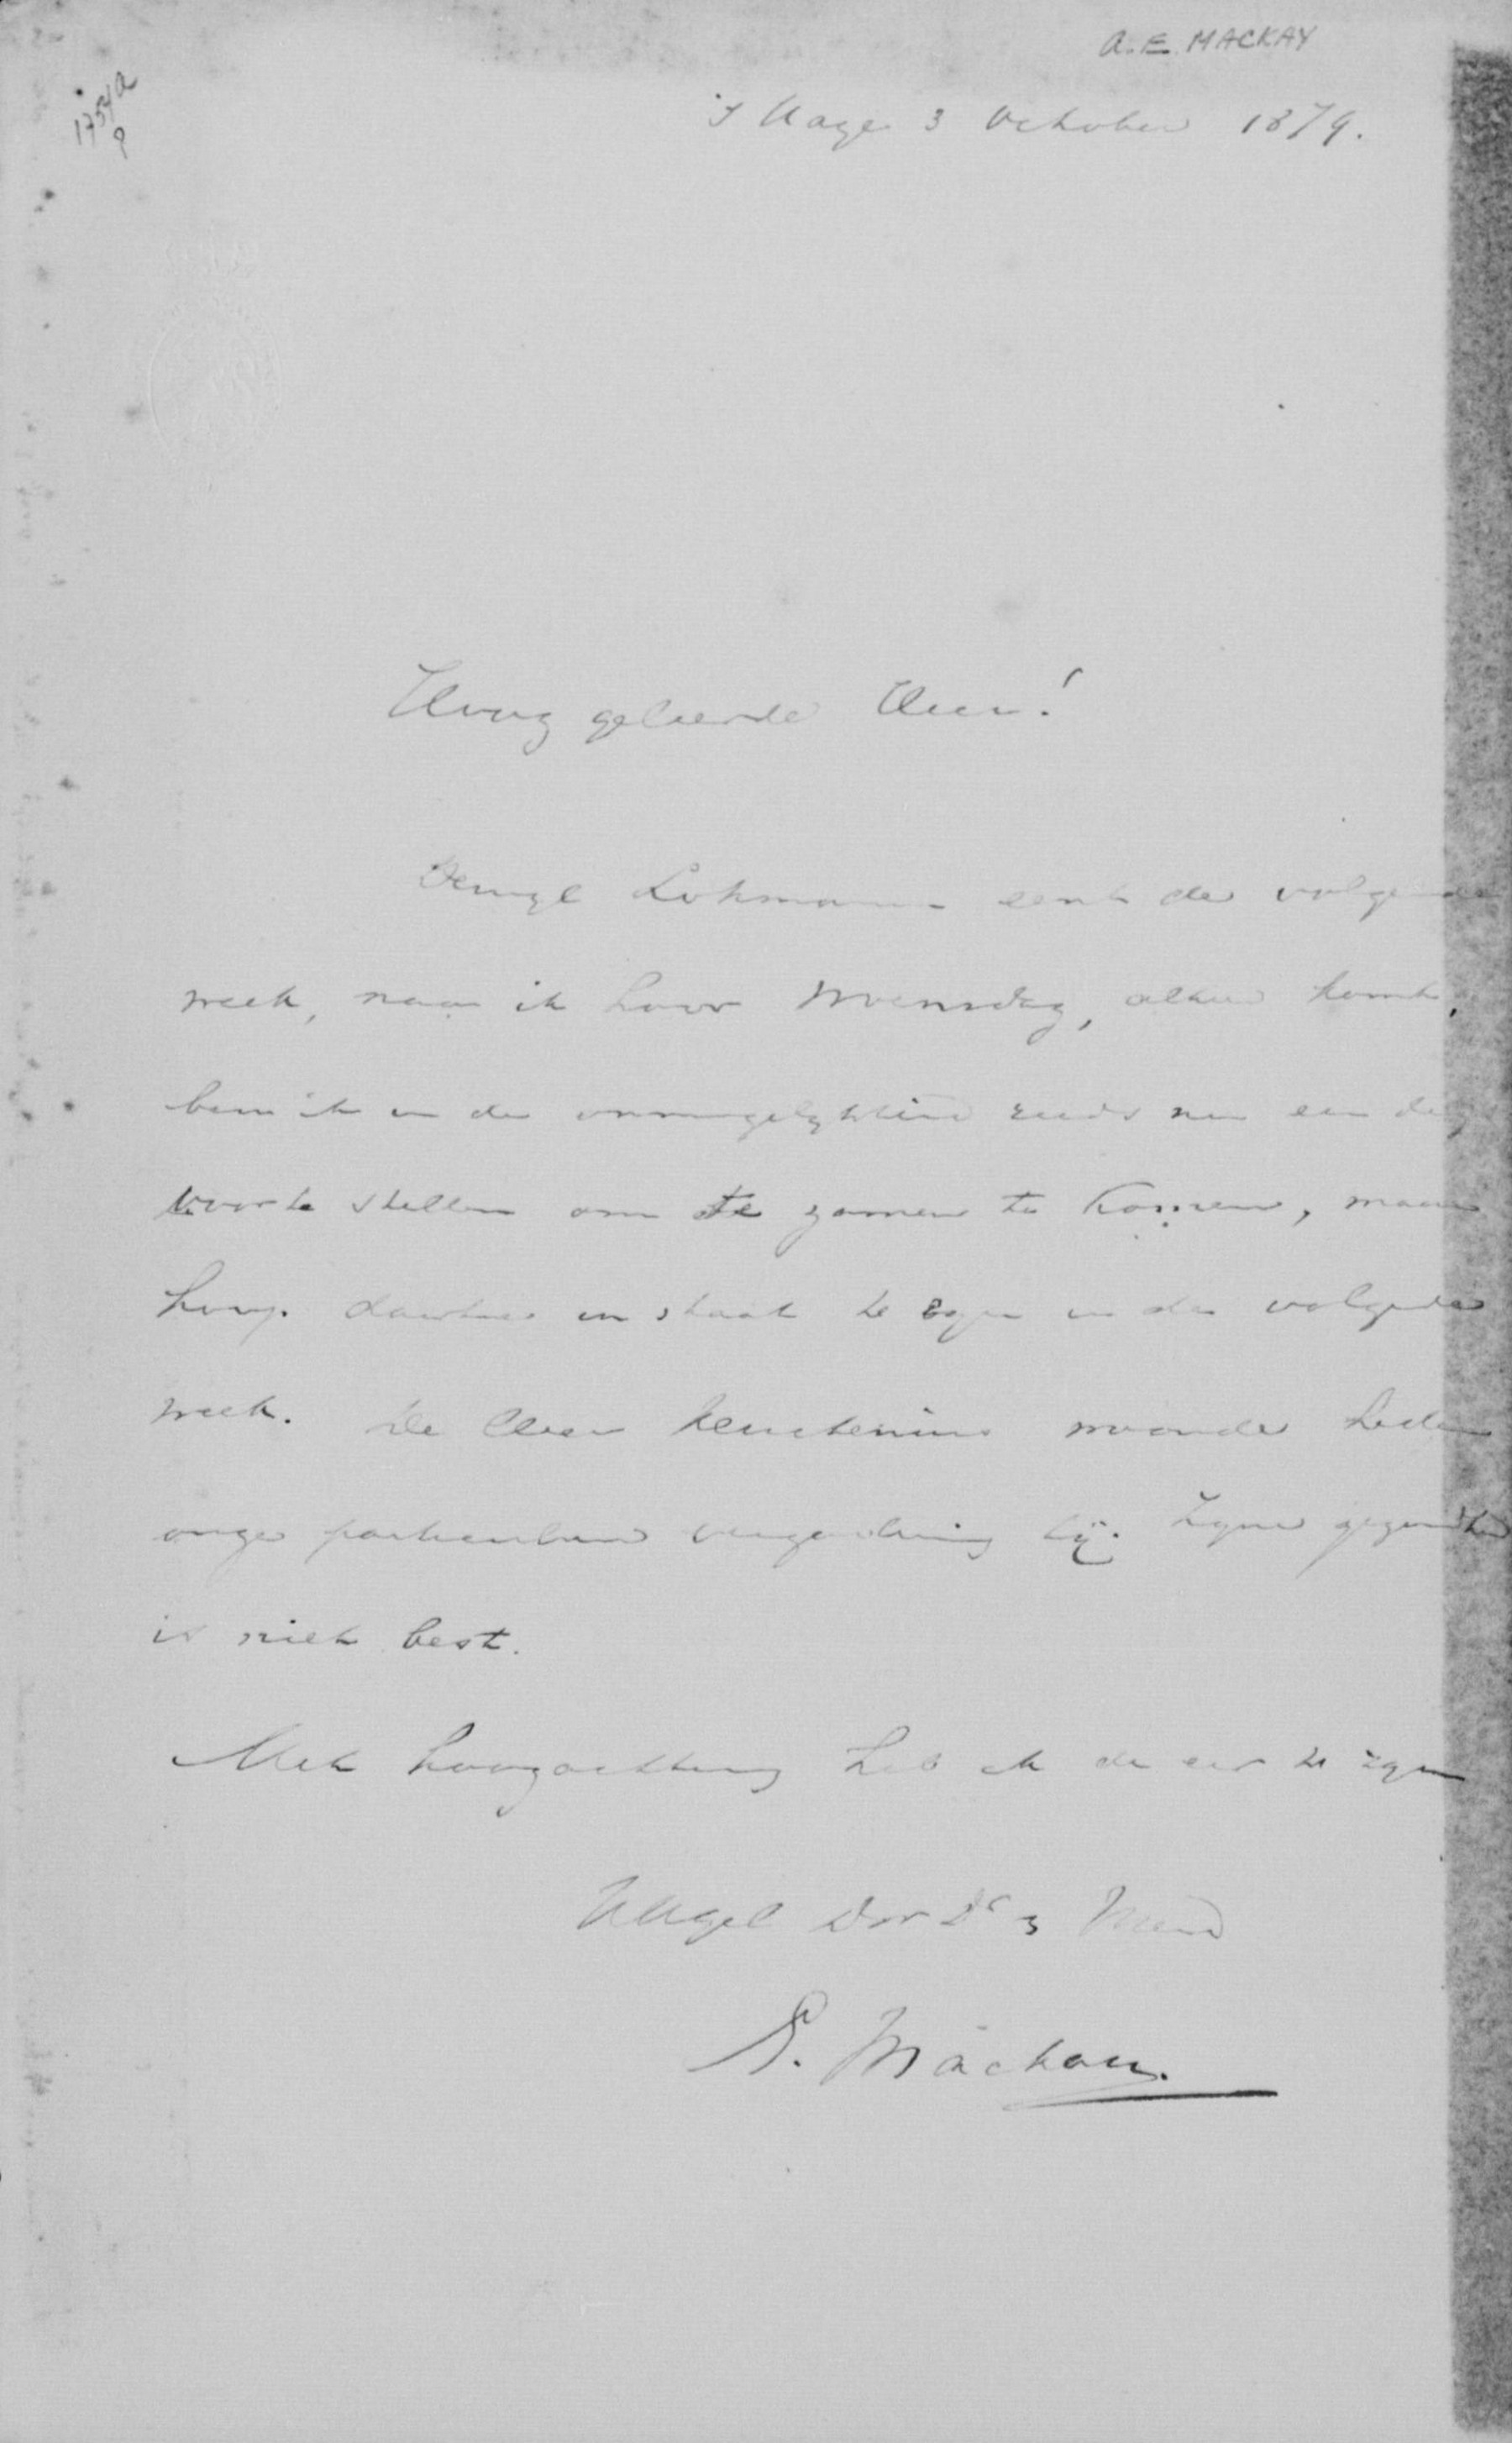 A. E. MACKAY
1754a
's Hage 3 October 1879.
Hoog geleerde Heer!
Lohman eerst de volgende
week, naar ik hoor Woensdag, alhier komt,
ben ik in de onmogelykheid reeds nu een dag
voor te stellen om te zamen te komen, maar
hoop daartoe in staat te zyn in de volgende
week. De Heer Keuchenius woonde heden
onze particuliere vergadering bij. Zyne gezondheid
is niet best.
Met hoogachting heb ik de eer te zyn
UHgel
E. Mackay.